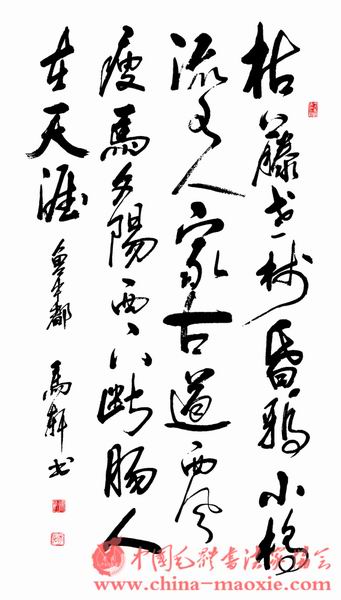 枯藤老树昏鴉小橋
流水人家古道西风
瘦馬夕陽西下断腸人
在天涯
魯中都 馬軒书
中国毛體书法家协会
www.china-maoxie.com